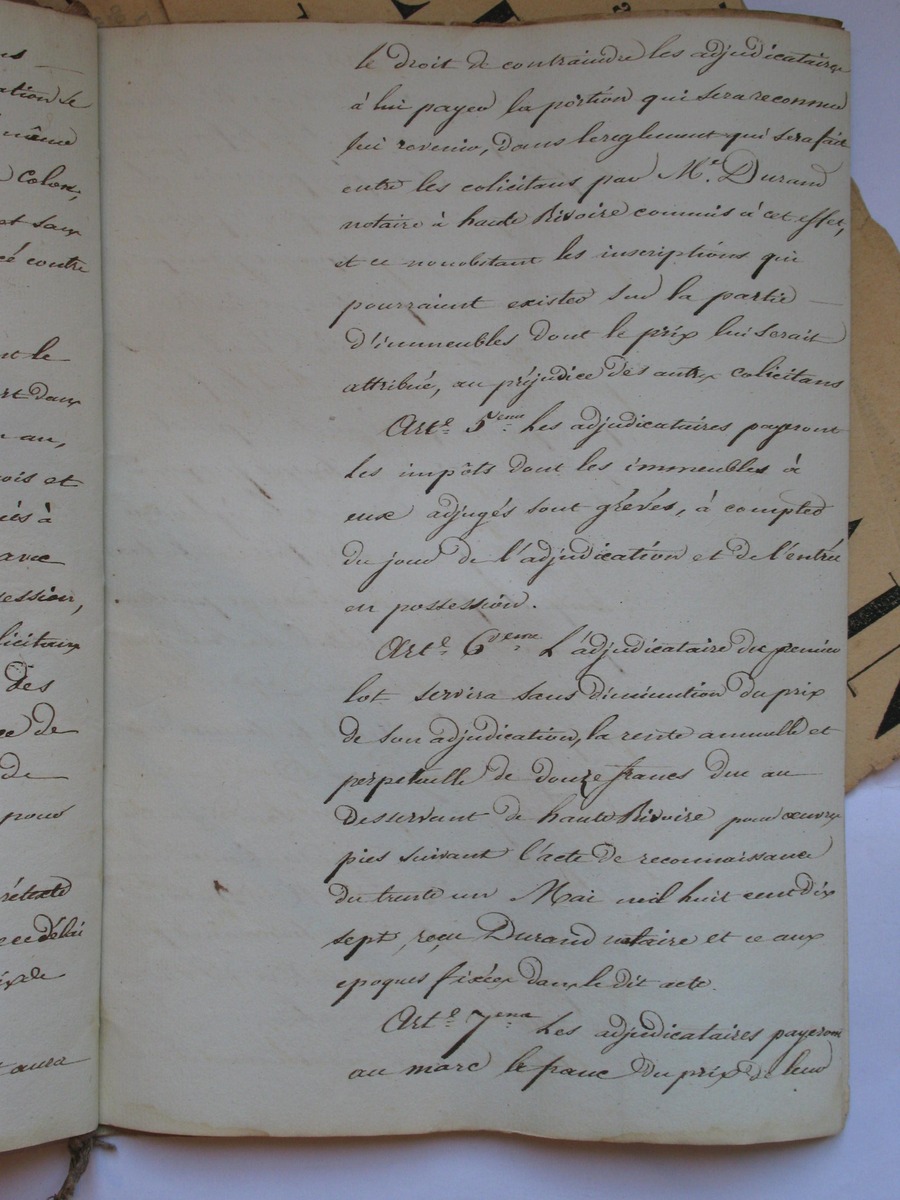 le droit de contraindre les adjudicataires
à lui payer la portion qui sera reconnue
lui revenir, dans le reglement qui sera fait
entre les colicitans par Me. Durand
notaire à haute Rivoire commis à cet effet,
et ce nonobstant les inscriptions qui
pourraient exister sur la partie
d'immeubles dont le prix lui serait
attribué, au préjudice des autres colicitans
Arte. 5eme. Les adjudicataires payeront
les impôts dont les immeubles à
eux adjugés sont grévés, à compter
du jour de l'adjudication et de l'entrée
en possession.
Arte. 6eme. L'adjudicataire du premier
lot servira sans diminution du prix
de son adjudication, la rente annuelle et
perpetuelle de douze francs due au
desservant de haute Rivoire pour œuvres
pies suivant l'acte de reconnaissance
du trente un Mai mil huit cent dix
sept, reçu Durand notaire et ce aux
epoques fixées dans le dit acte.
Arte. 7eme Les adjudicataires payeront
au marc le franc du prix de leur
ation se
même
Colon,
et sans
contre
nt le
an,
ois et
à
avec
session,
des
de
de
pour
délai
aura